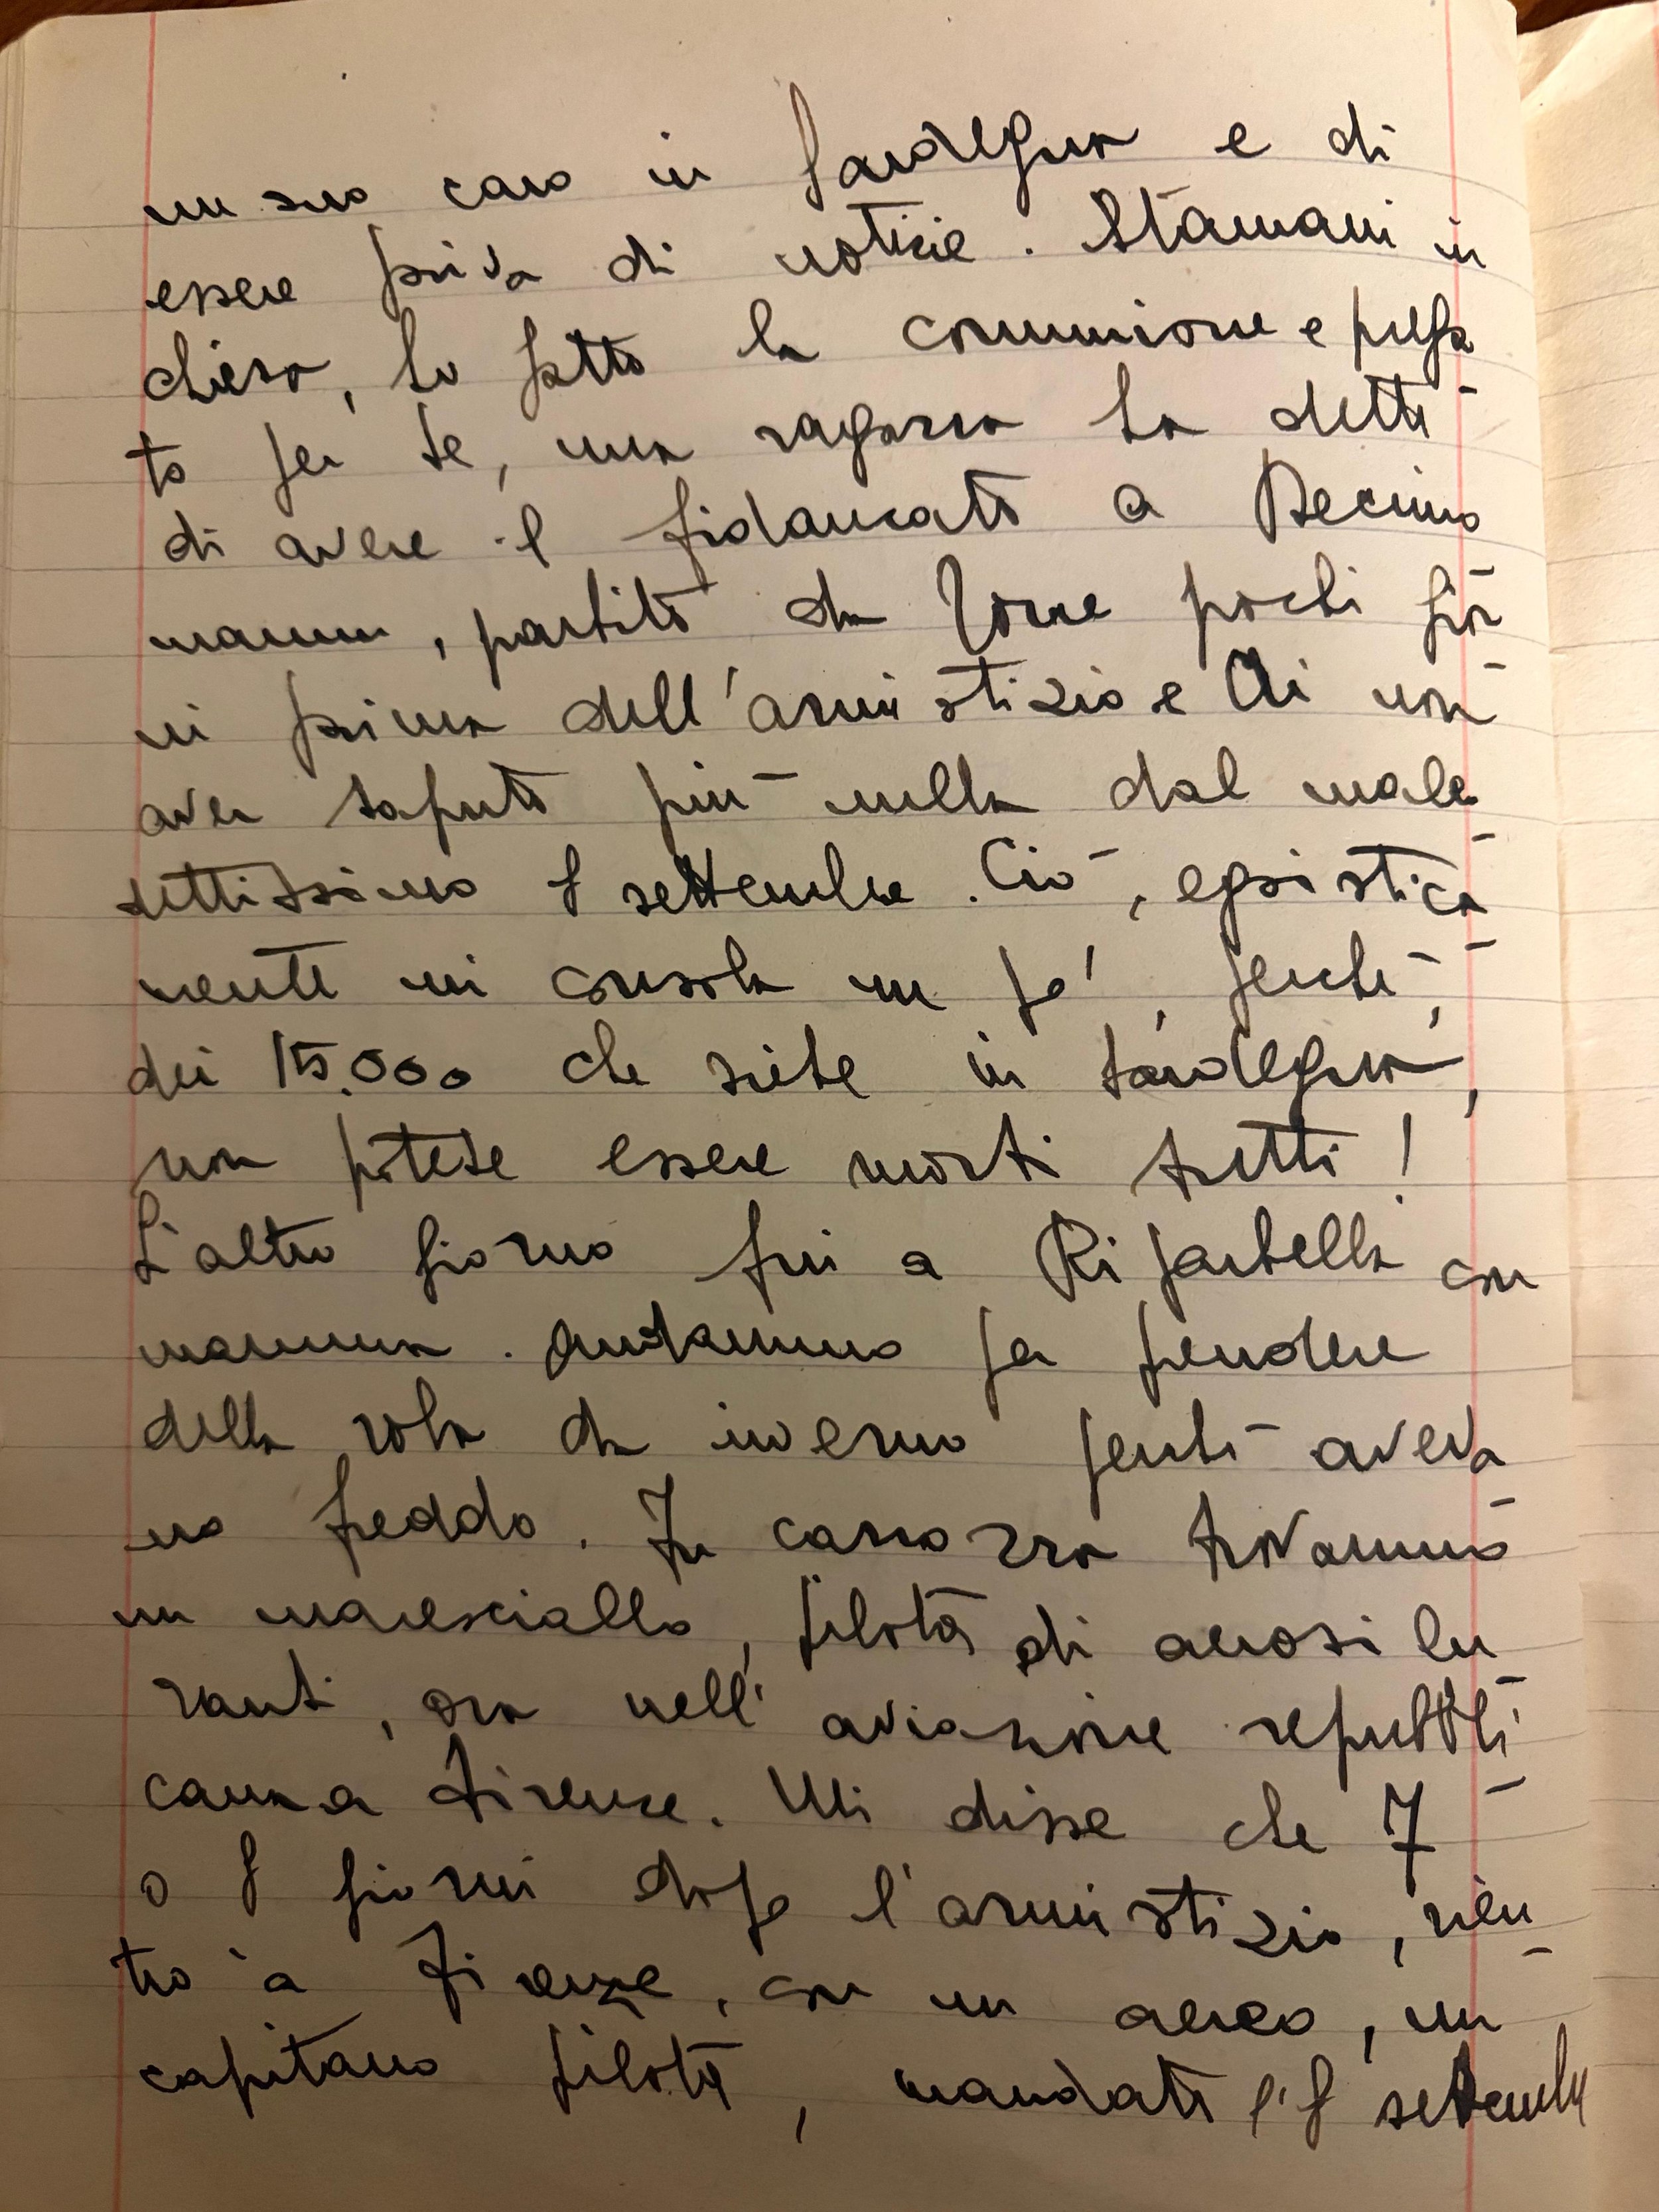 un suo caro in Sardegna e di
essere priva di notizie. Stamani in
chiesa, ho fatto la comunione e prega
to per te, una ragazza ha detto
di avere il fidanzato a Decimo
mannu, partito da Roma pochi gior
ni prima dell'armistizio e di non
aver saputo più nulla dal male
dettissimo 8 settembre. Ciò, egoistica
mente mi consola un po', perché,
dei 15.000 che siete in Sardegna,
non potete essere morti tutti!
L'altro giorno fui a Riparbella con
mamma. Andammo per prendere
della roba da inverno perché aveva
no freddo. In carrozza trovammo
un maresciallo, pilota di aerosilu
ranti, ora nell'aviazione repubbli
cana a Firenze. Mi disse che 7
o 8 giorni dopo l'armistizio, rien
trò a Firenze, con un aereo, un
capitano pilota, mandato l'8 settembre